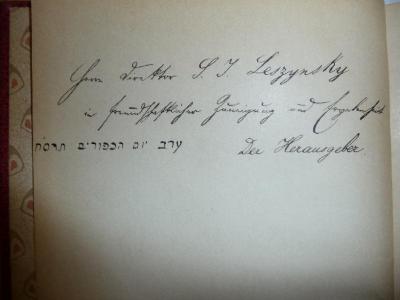 Herrn Direktor S. J. Leszynsky
in freundschaftlicher Zuneigung und Ergebenheit
ערב יום הכפורים תרס"ח Der Herausgeber